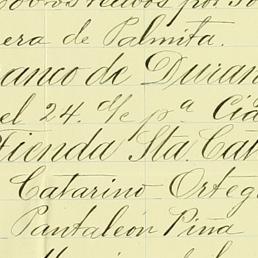 recibos por
era de Palmita.
anco de Duran
el 24. de pª Cia
Tienda Sta. Cat
Catarino Orteg
Pantaleón Piña